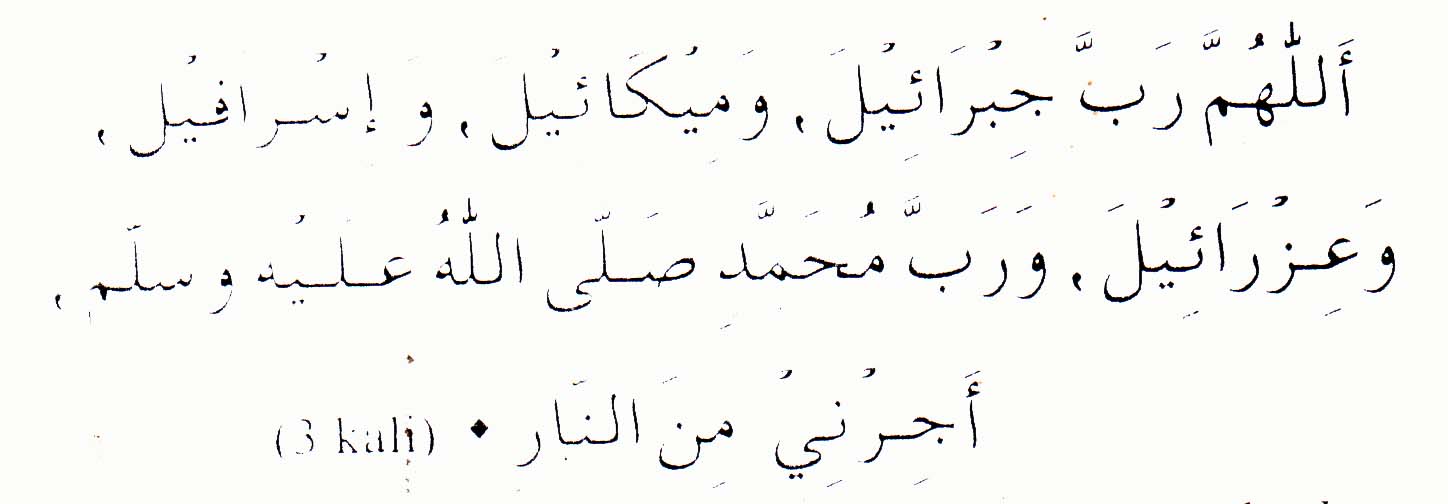 أَللّٰهُمَّ رَبَّ جِبْرَائِيْلَ، وَمِيْكَائِيْلَ، وَ إِسْرافيْل،
وَعِزْرَائِيْلَ، وَرَبَّ مُحَمَّدِ صَلّى اللّٰهُ عَلَيْه وسلّم،
أَجِرْنِيْ مِنَ النَّار • (3 kali)